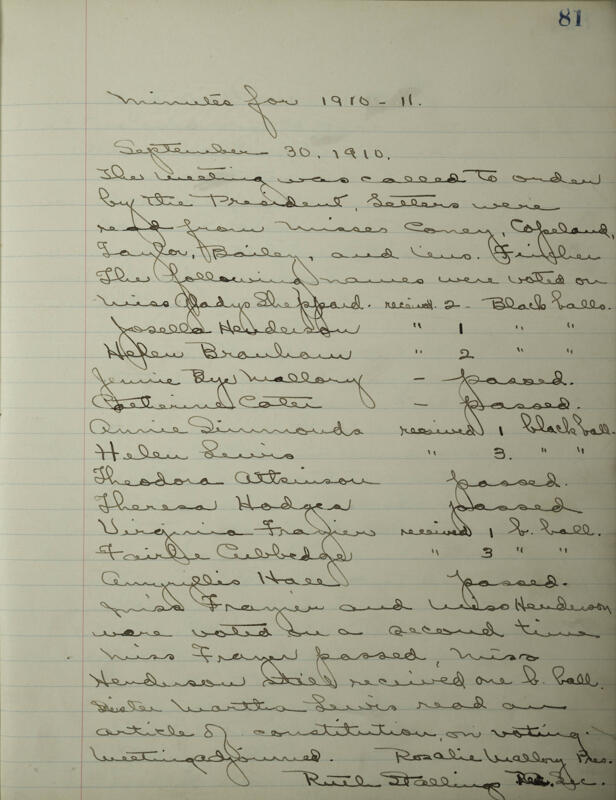 81
Minutes for 1910-11.
September 30, 1910.
The meeting was called to order
by the President. Letters were
read from Misses Coney, Copeland,
Taylor, Bailey, and
The following names were voted on
Miss Gladys Sheppard. received 2 - Black balls.
Josella Henderson " 1 " "
Helen Branham " 2 " "
Jennie Bye Mallory - passed.
Catherine Cater - passed.
Annie Simmonds received 1 black ball.
Helen Lewis " 3. " "
Theodora Atkinson passed.
Theresa Hodges passed
Virginia Frazier received 1 b. ball.
Fairlie Cubbedge " 3 " "
Amyrillis Hall passed.
Miss Frazier and Miss Henderson
were voted on a second time
Miss Frazer passed, Miss
Henderson still received one b. ball.
Sister Martha Lewis read an
article of constitution, on voting.
Meeting adjourned. Rosalie Mallory Pres.
Ruth Stallings Rec. Sec.